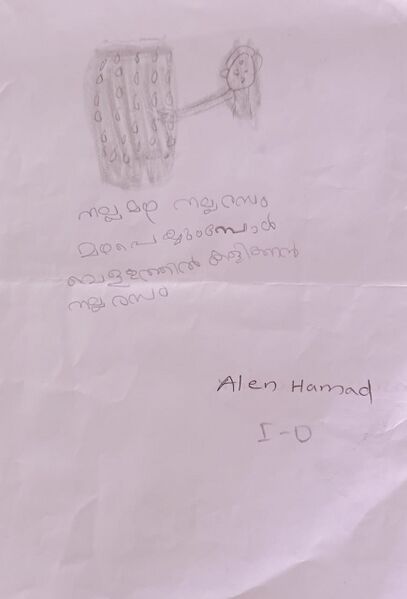 നല്ല മഴ നല്ല രസം
മഴപെയ്യുംമ്പോൾ
വെള്ളത്തിൽ കളിക്കാൻ
നല്ല രസം
Alen Hamad
I-D